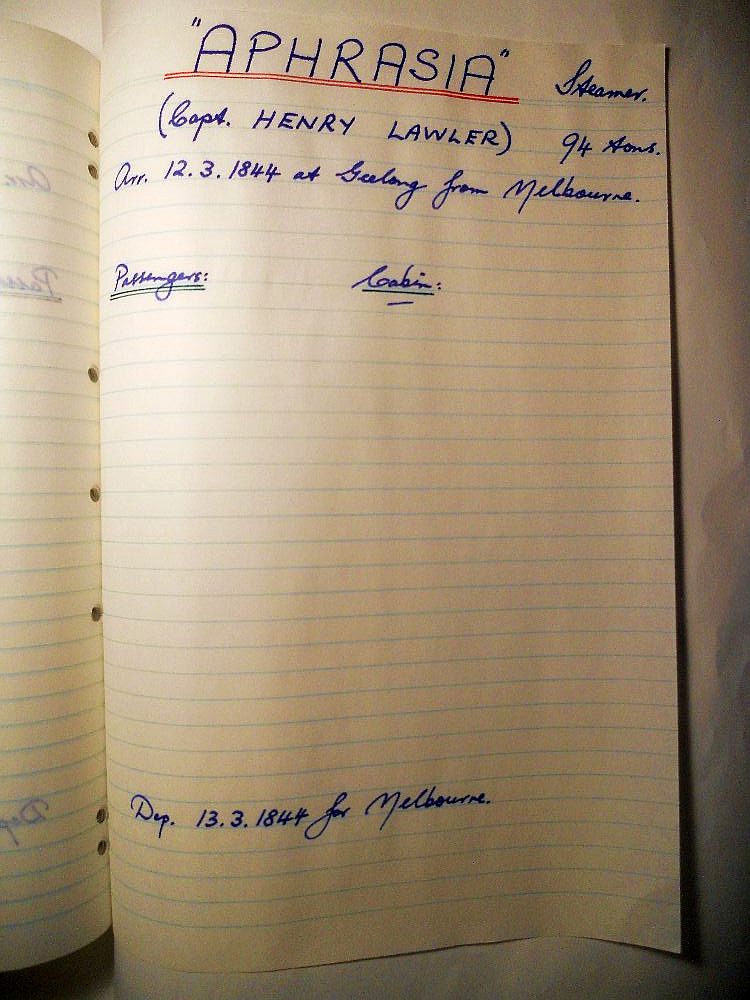 "APHRASIA" Steamer.
(Capt. HENRY LAWLER) 94 tons.
Arr. 12.3.1844 at Geelong from Melbourne.
Passengers: Cabin:
Dep. 13.3.1844 for Melbourne.